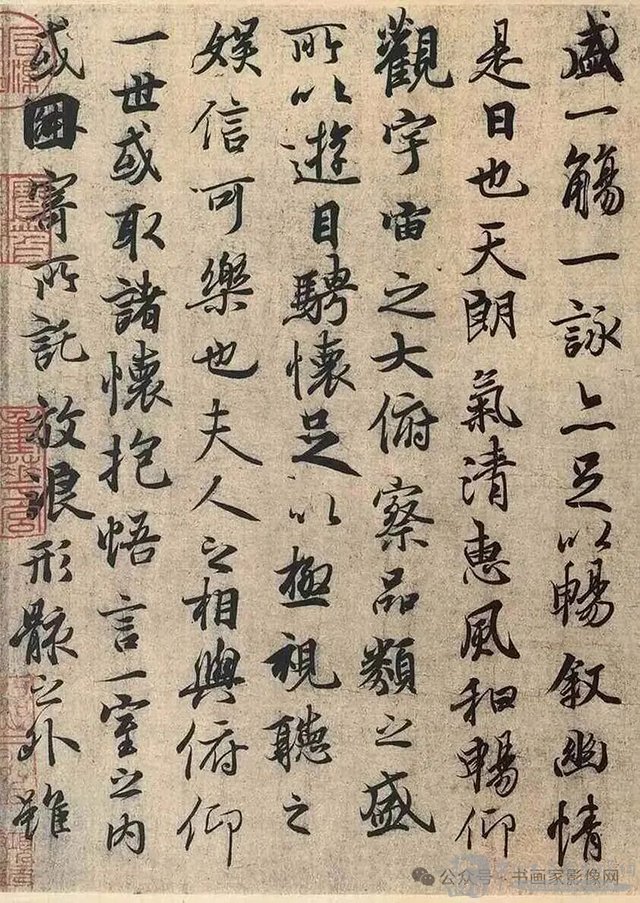 盛一觴一詠亦足以暢敘幽情
是日也天朗氣清惠風和暢仰
觀宇宙之大俯察品類之盛
所以遊目騁懷足以極視聽之
娛信可樂也夫人之相與俯仰
一世或取諸懷抱悟言一室之内
或因寄所託放浪形骸之外雖
公众号·书画家影像网